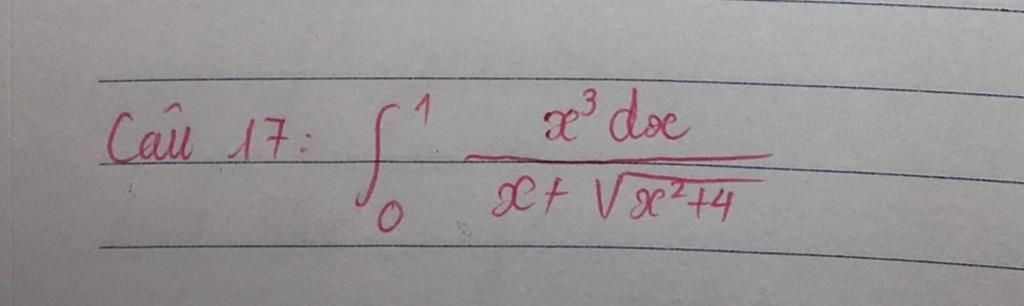 Câu 17: ∫₀¹ x³dx / (x + √(x²+4))